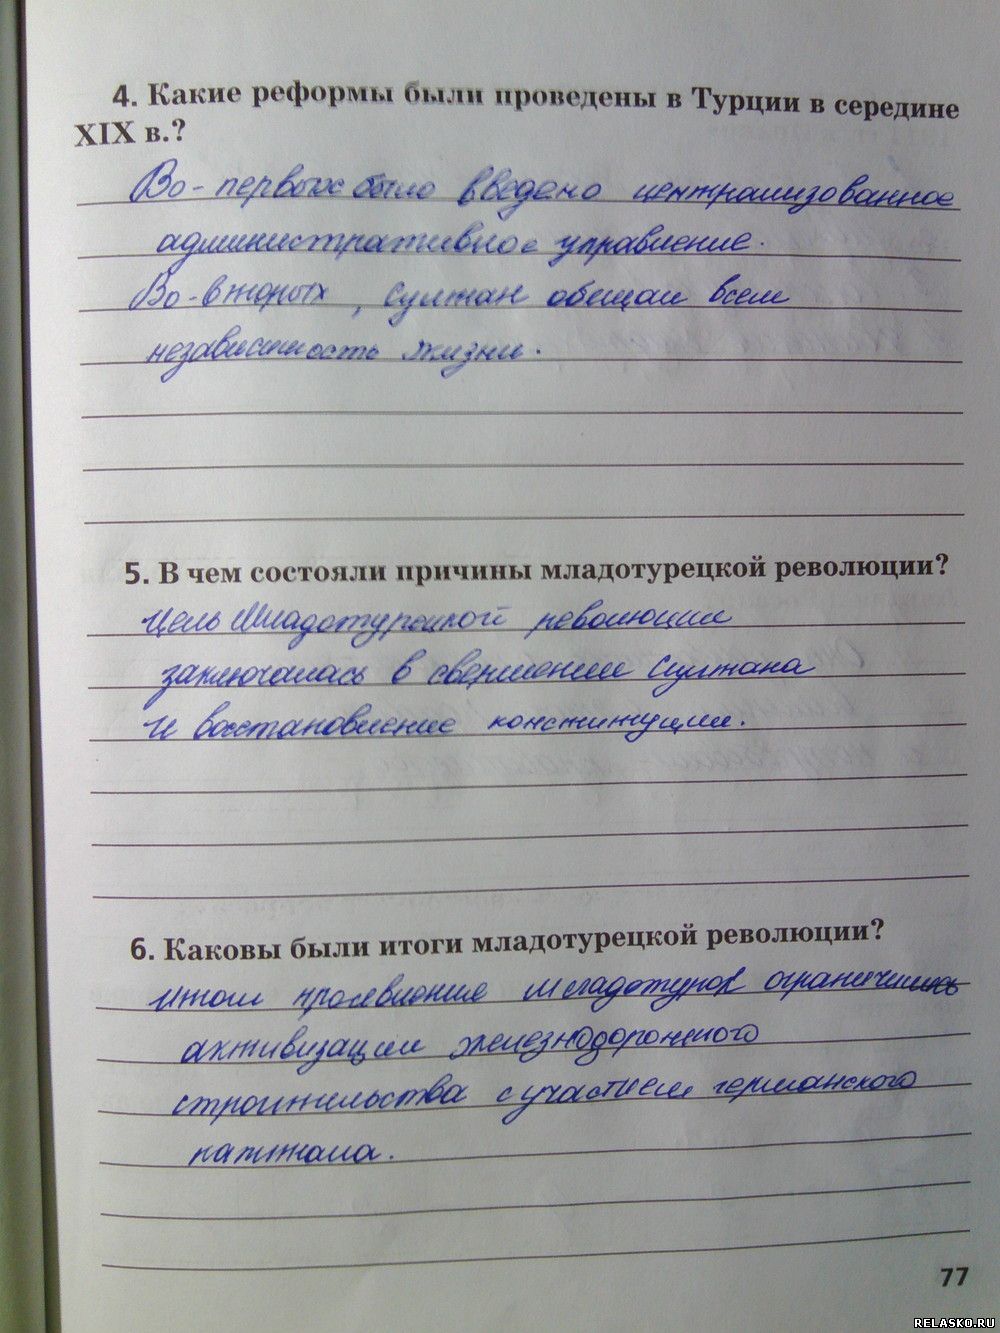 4. Какие реформы были проведены в Турции в середине
XIX в.?
Во-первых было введено централизованное
административное управление.
Во-вторых, Султан обещал всем
независимость жизни.
5. В чем состояли причины младотурецкой революции?
Цель Младотурецкой революции
заключалась в свершении Султана
и восстановление конституции.
6. Каковы были итоги младотурецкой революции?
Итоги младотурок
активизации железнодорожного
строительства с участием германского
капитала.
77
RELASKO.RU